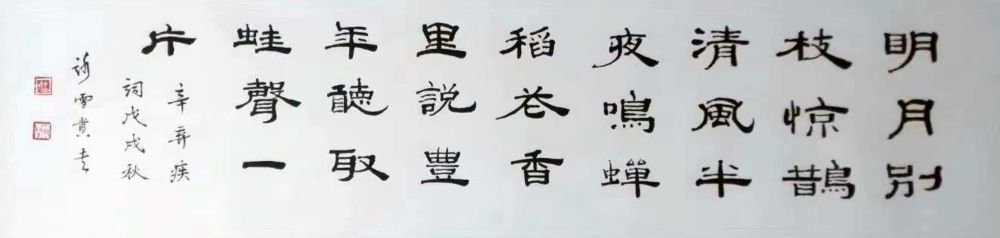 明月别
枝惊鵲
清風半
夜鳴蟬
稻花香
里説豐
年聽取
蛙聲一
片
辛弃疾
詞戊戌秋
雪貴书